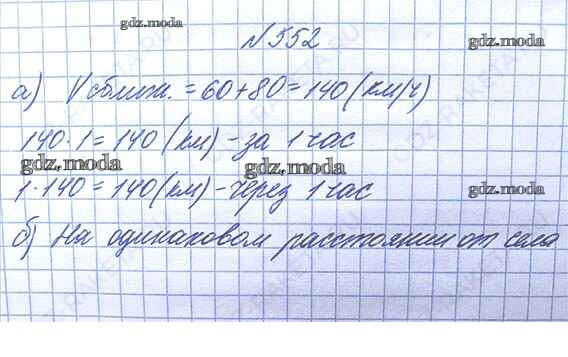 gdz.moda
№552
gdz.moda
а) Vсближ. = 60+80=140 (км/ч)
140·1=140 (км) - за 1 час
gdz.moda
gdz.moda
1·140=140(км) - через 1 час
gdz.moda
б) На одинаковом расстоянии от села